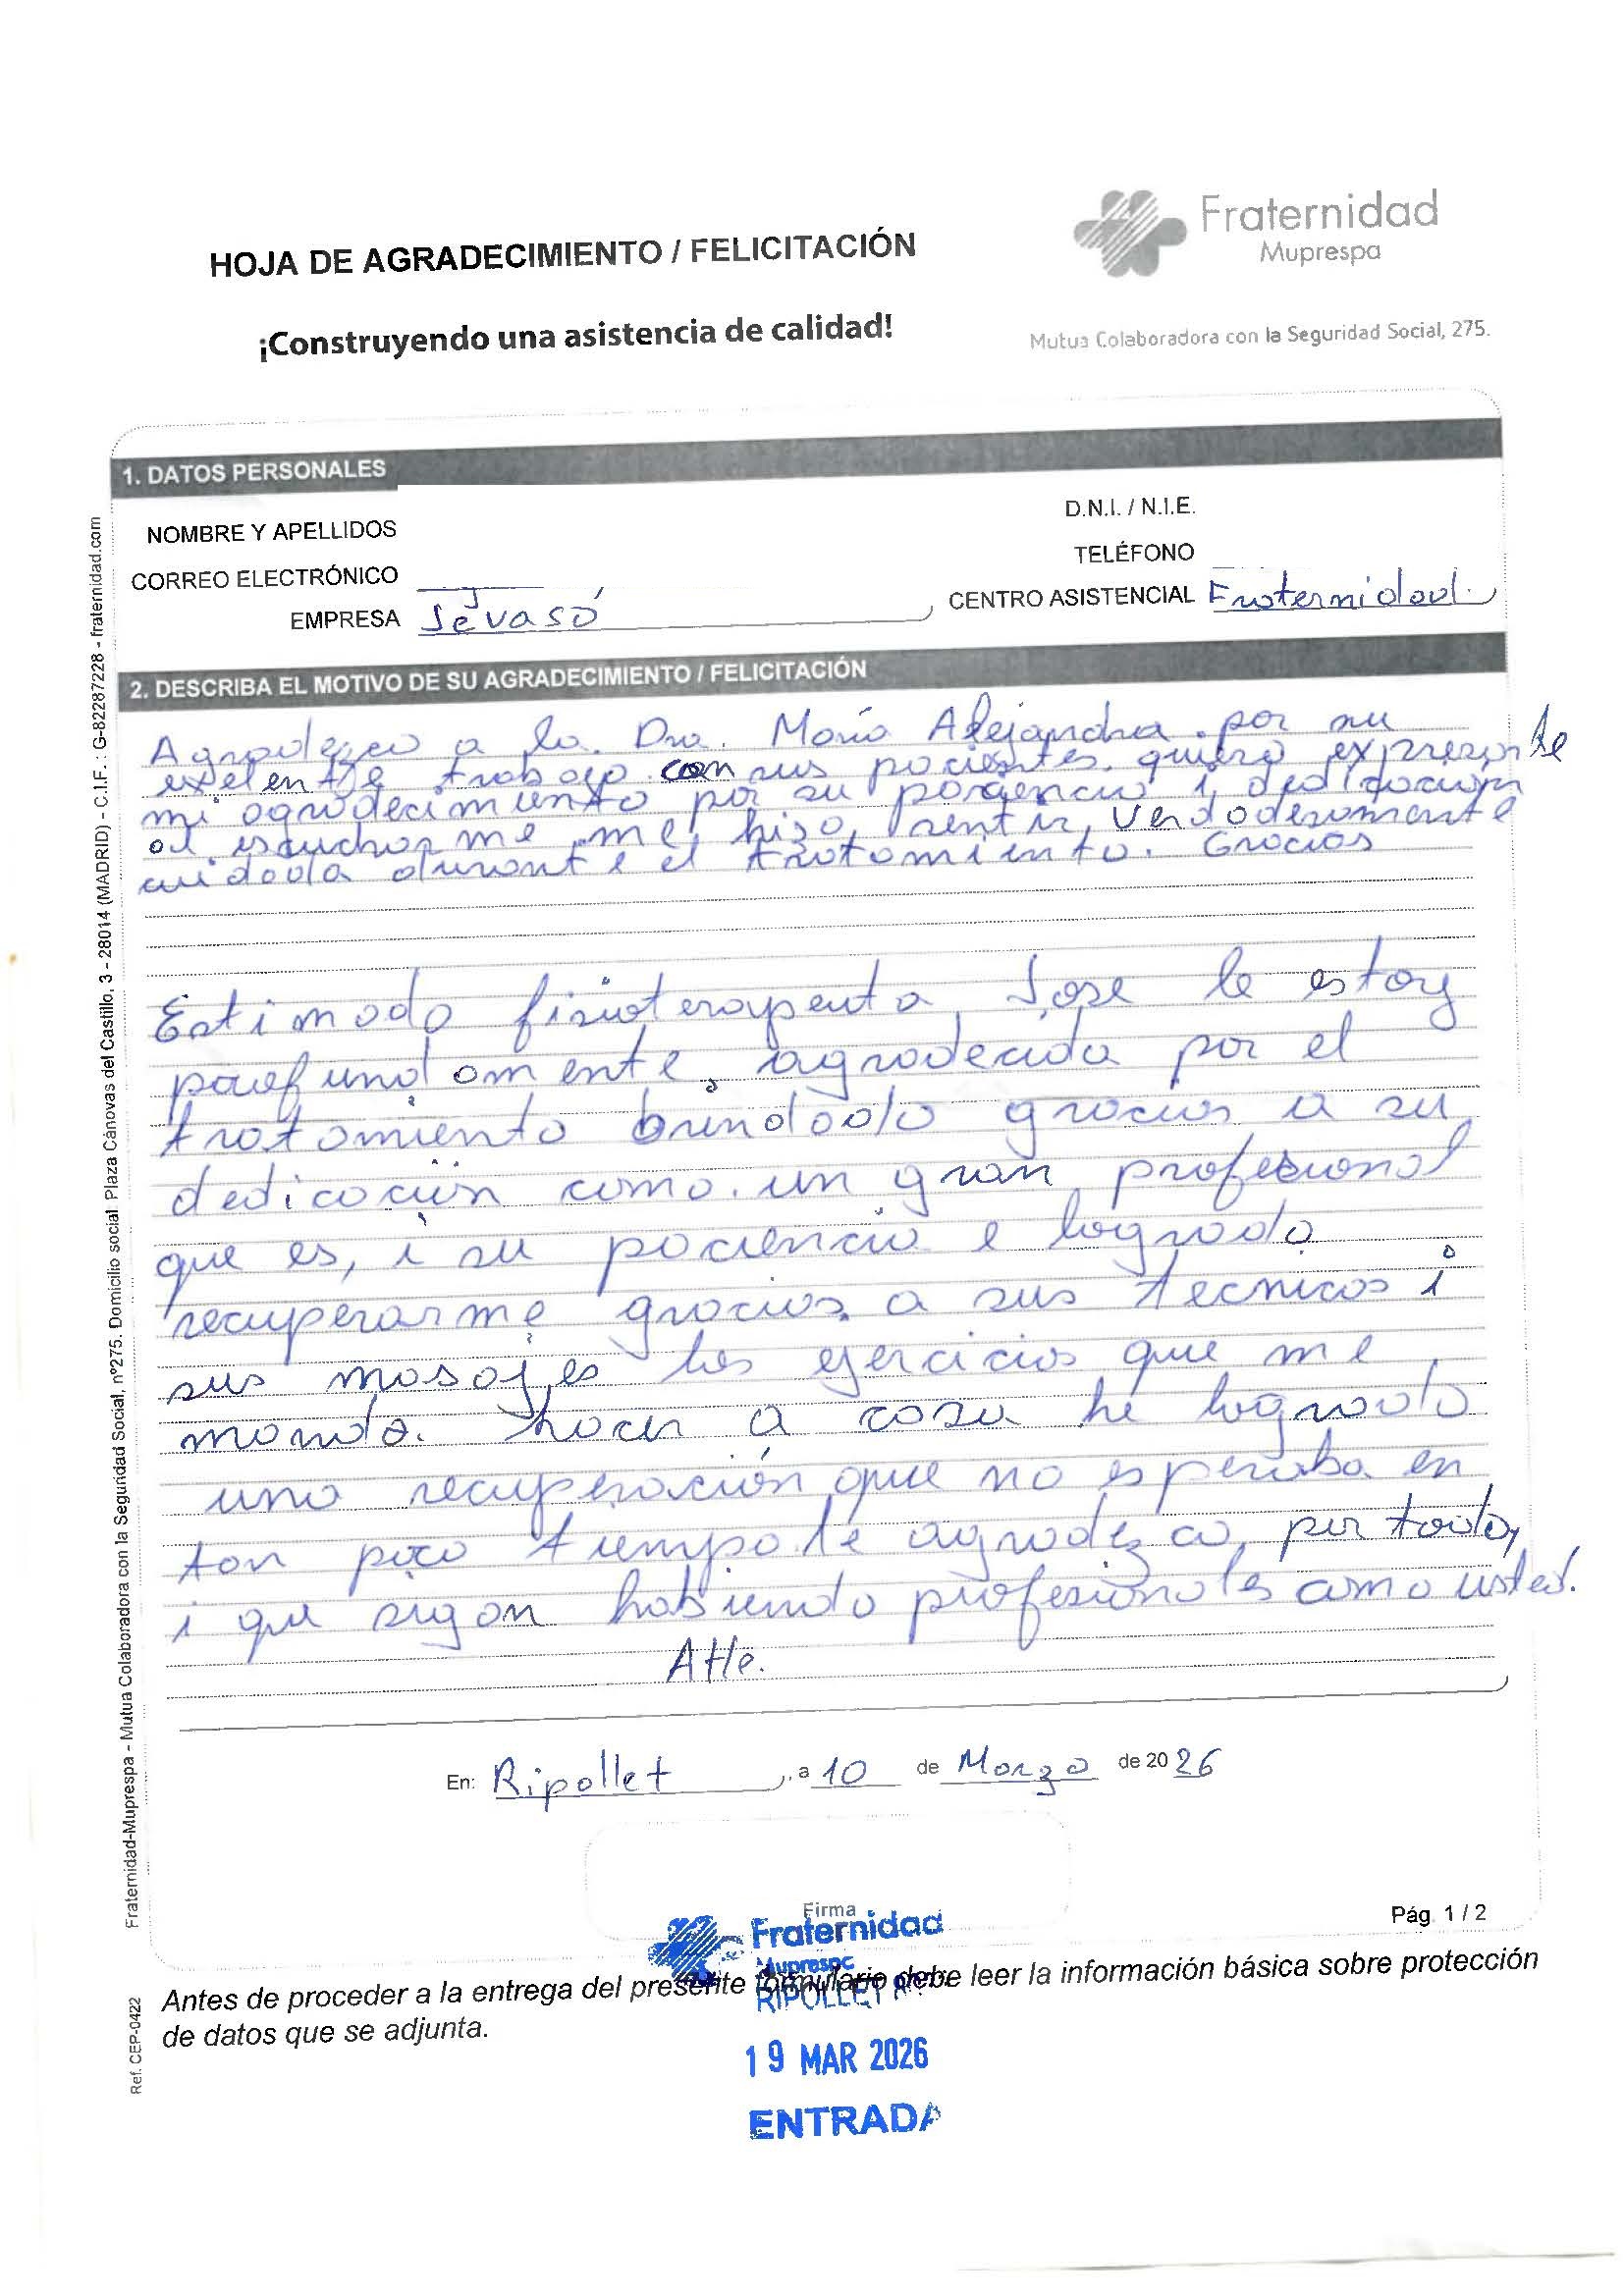 HOJA DE AGRADECIMIENTO / FELICITACIÓN
¡Construyendo una asistencia de calidad!
Fraternidad
Muprespa
Mutua Colaboradora con la Seguridad Social, 275.
1. DATOS PERSONALES
NOMBRE Y APELLIDOS
D.N.I. / N.I.E.
CORREO ELECTRÓNICO
TELÉFONO
EMPRESA Jevasó
CENTRO ASISTENCIAL Fraternidad.
2. DESCRIBA EL MOTIVO DE SU AGRADECIMIENTO / FELICITACIÓN
Agradezco a la. Dra. María Alejandra por su
exelente trabajo con sus pacientes. quiero expresarle
mi agradecimiento por su i dedicación
al escucharme me hiso sentir, verdaderamente
cuidada durante el tratamiento. Gracias
Estimado fisioterapeuta Jose le estoy
profundamente, agradecida por el
tratamiento brindado gracias a su
dedicación como un gran profesional
que es, i su paciencia e logrado
recuperarme gracias a sus tecnicas i
sus masajes los ejercicios que me
manda. hacer a casa hé logrado
una recuperación que no esperaba en
tan poco tiempo lé agradezco, por todo,
i que sigan habiendo profesionales como usted.
Atte.
En: Ripollet, a 10 de Marzo de 2026
Firma
Pág. 1 / 2
Fraternidad
Muprespa
RIPOLLET
Antes de proceder a la entrega del presente formulario debe leer la información básica sobre protección
de datos que se adjunta.
19 MAR 2026
ENTRADA
Fraternidad-Muprespa - Mutua Colaboradora con la Seguridad Social, nº275. Domicilio social: Plaza Cánovas del Castillo, 3 - 28014 (MADRID) - C.I.F. : G-82287228 - fraternidad.com
Ref. CEP-0422